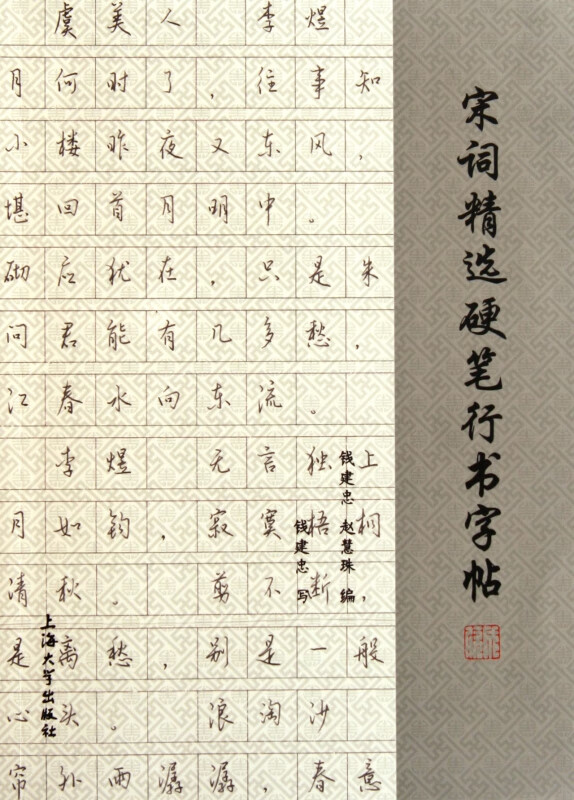 宋词精选硬笔行书字帖
钱建忠 赵慧珠 编
钱建忠 写
上海大学出版社
虞美人 李煜
月何时了，往事知
小楼昨夜又东风，
堪回首月明中。
砌应犹在，只是朱
问君能有几多愁，
江春水向东流。
李煜 无言独上
月如钩，寂寞梧桐
清秋。剪不断，
是离愁，别是一般
心头。浪淘沙
帘外雨潺潺，春意